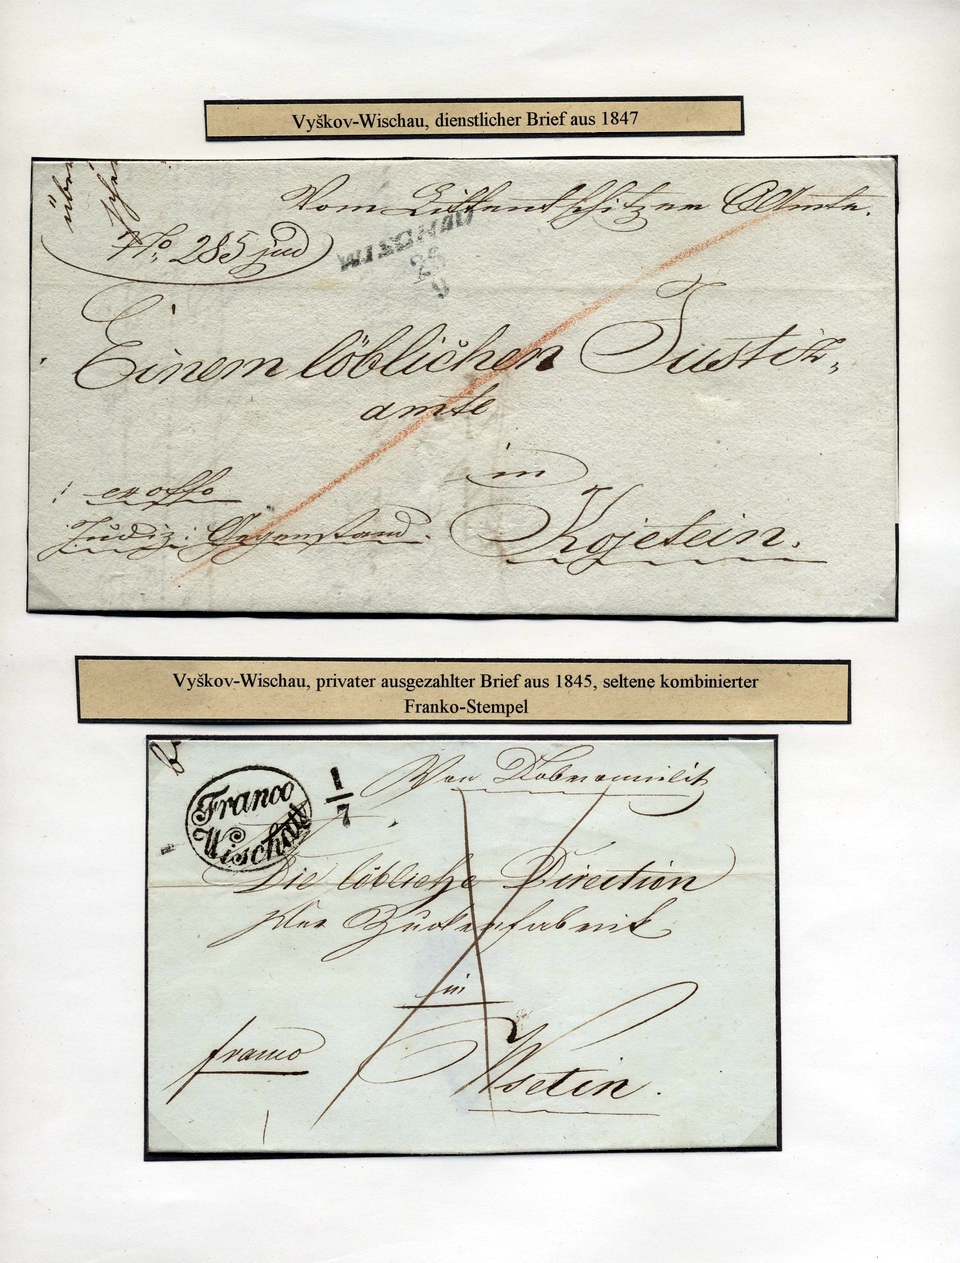 Vyškov-Wischau, dienstlicher Brief aus 1847
über
Vom Amte.
No. 285 jud
WISCHAU
25
9
Einem löblichen Justiz-
amte
in
ex offo
Judiz: Gegenstand.
Kojetein.
Vyškov-Wischau, privater ausgezahlter Brief aus 1845, seltene kombinierter
Franko-Stempel
Franco
Wischau
1/7
Von
Die löbliche Direction
der Zuckerfabrik
in
franco
Wsetin.